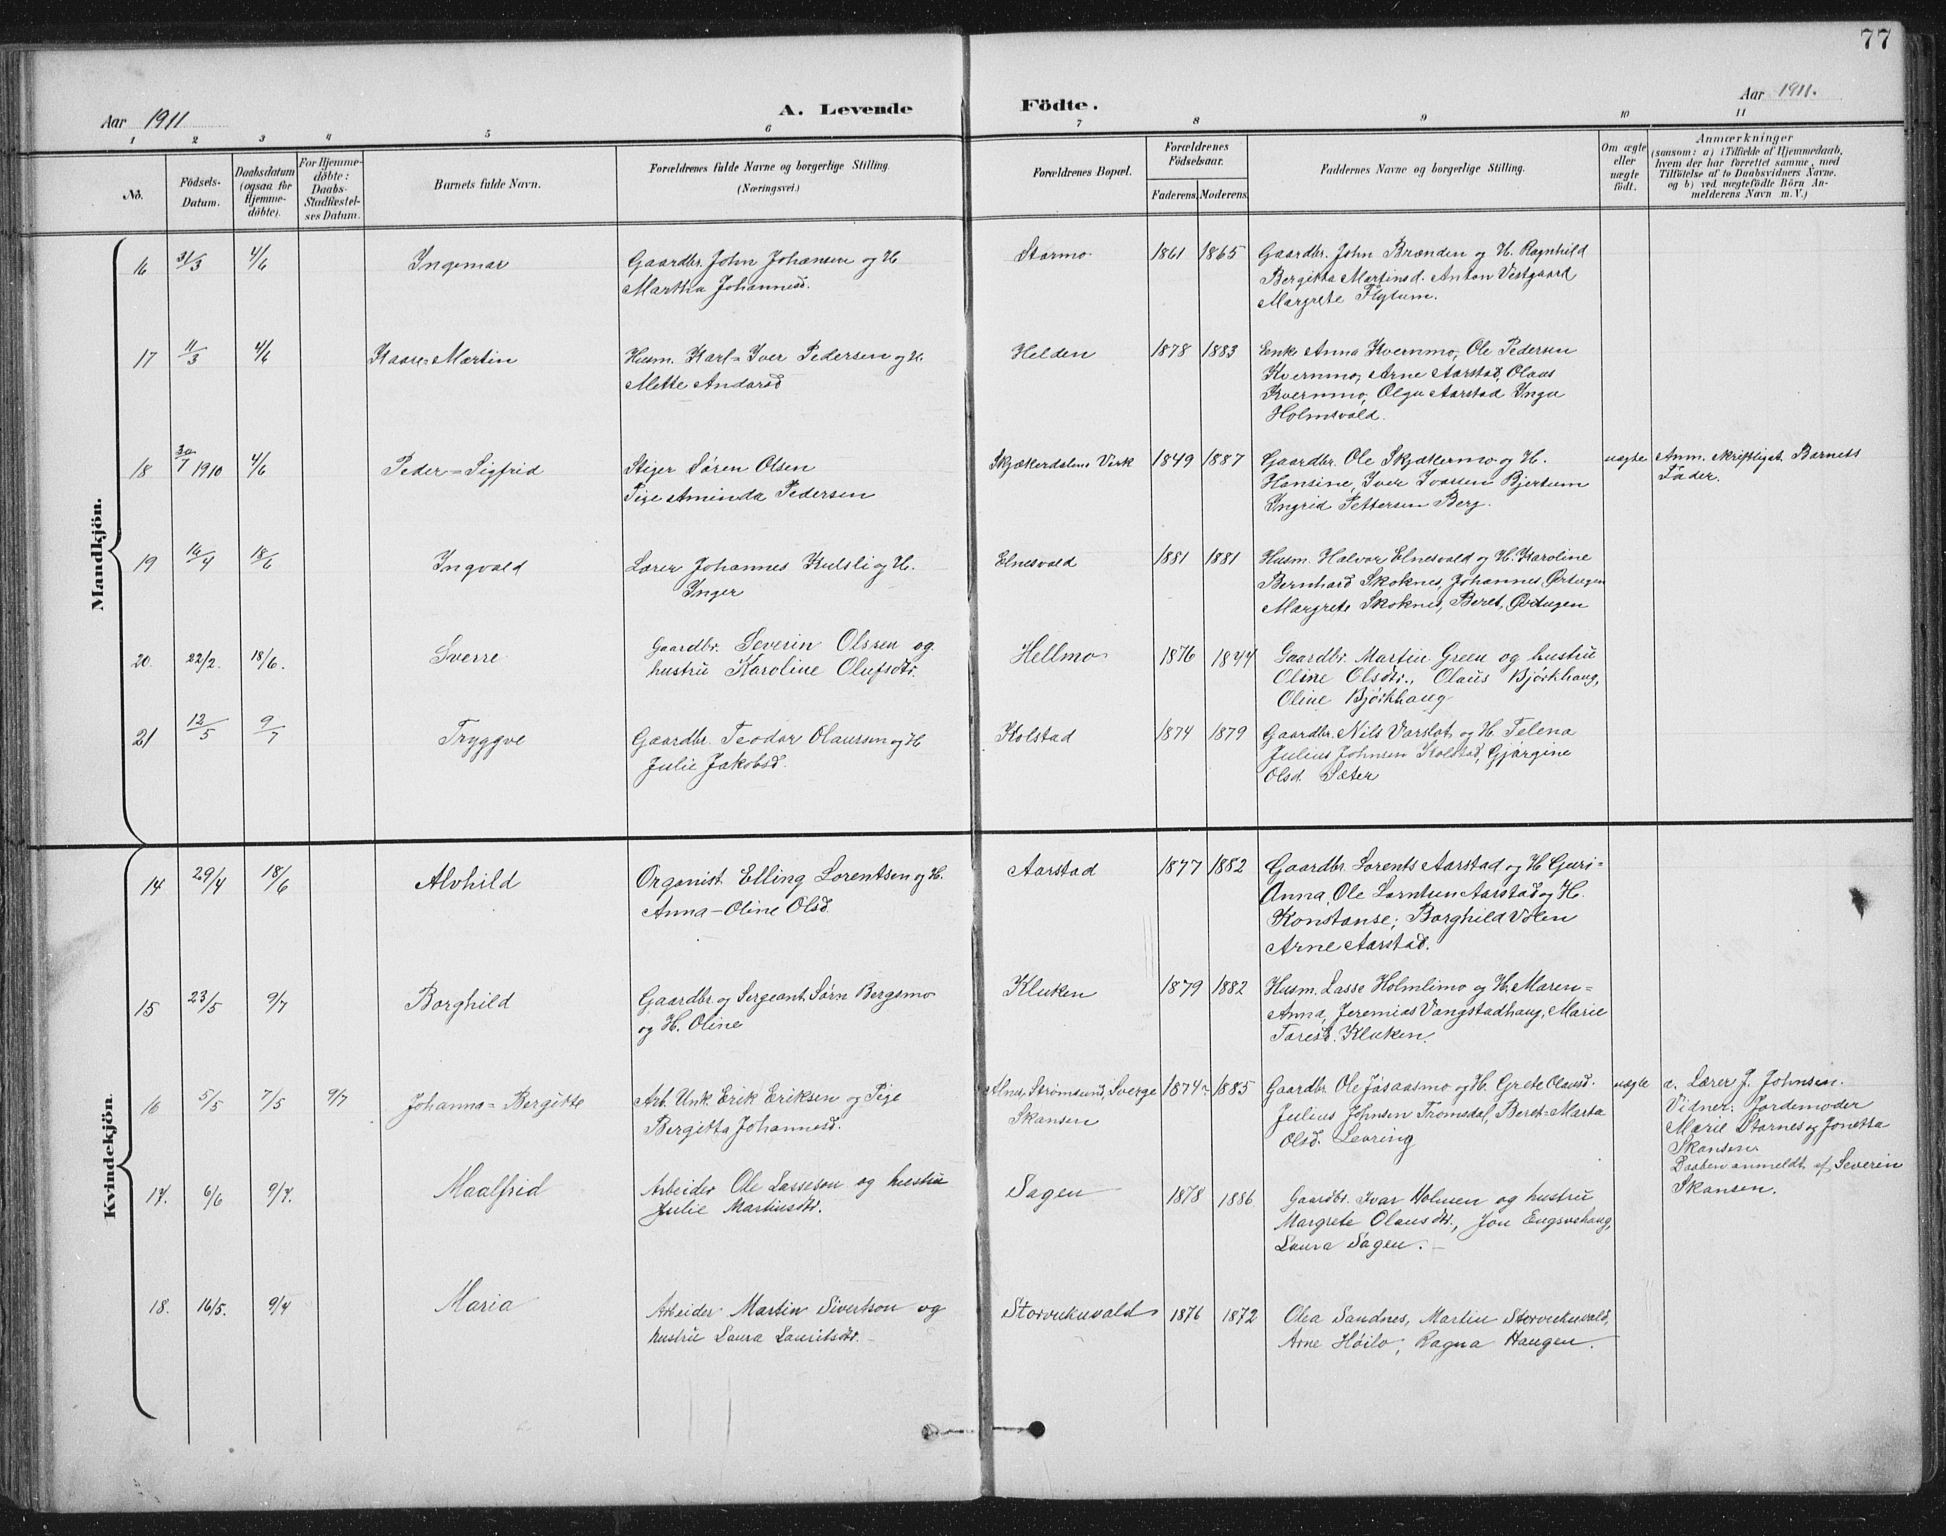 77
Aar 1911
A. Levende
Födte.
Aar 1911.
1 2 3 4 5 6 7 8 9 10 11
No.
Födsels-
Datum.
Daabsdatum
(ogsaa for
Hjemme-
döbte).
For Hjemme-
döbte:
Daabs-
Stadfæstel-
ses Datum.
Barnets fulde Navn.
Forældrenes fulde Navne og borgerlige Stilling.
(Næringsvei.)
Forældrenes Bopæl.
Forældrenes
Födselsaar.
Faderens. Moderens.
Faddernes Navne og borgerlige Stilling.
Om ægte
eller
uægte
födt.
Anmærkninger
(saasom: a) i Tilfælde af Hjemmedaab,
hvem der har forrettet samme, med
Tilföielse af to Daabsvidners Navne,
og b) ved uægtefödte Börn An-
melderens Navn m. V.)
Mandkjön.
16 31/3 4/6 Ingemar Gaardbr. John Johansen og H. Stormo 1861 1865 Gaardbr. John Brænden og H. Ragnhild
Martha Johannesd. Bergitta Martinsd. Anton Vestgaard
Margrete Flytum.
17 11/3 4/6 Kaare-Martin Husm. Karl-Iver Pedersen og H. Helden 1878 1883 Enke Anna Kvernmo, Ole Pedersen
Mette Andersd Kvernmo, Arne Aarstad, Olaus
Kvernmo, Olga Aarstad Inga
Holmsvald.
18 30/7 1910 4/6 Peder-Sigfrid Stiger Søren Olsen Skjækerdalens Verk 1849 1887 Gaardbr. Ole Skjækermo og H. uægte Anm. skriftligt. Barnets
Pige Aminda Pedersen Hansine, Iver Bjertum Fader.
Ingrid Pettersen Berg.
19 16/4 18/6 Ingvald Lærer Johannes Kulsli og H. Elnesvald 1881 1881 Husm. Halvor Elnesvald og H. Karoline
Inger Bernhard Skoknes, Johannes Ørtugen
Margrete Skoknes, Beret Ørtugen
20. 22/2. 18/6. Sverre Gaardbr. Severin Olssen og Hellmo 1876 1844 Gaardbr. Martin Green og hustru
hustru Karoline Olufsdtr. Oline Olsdtr., Olaus Bjørkhaug,
Oline Bjørkhaug
21 12/5 9/7 Tryggve Gaardbr. Teodor Olaussen og H Kolstad 1874 1879 Gaardbr. Nils Varslot og H. Telena
Julie Jakobsd. Julius Johnsen Kolstad, Gjørgine
Olsd. Sæter
Kvindekjön.
14 29/4 18/6 Alvhild Organist Elling Lorentsen og H. Aarstad 1877 1882 Gaardbr. Lorents Aarstad og H. Guri-
Anna-Oline Olsd. Anna, Ole Lorntsen Aarstad og H.
Konstanse, Borghild Volen
Arne Aarstad.
15 23/5 9/7 Borghild Gaardbr og Sergeant Sørn Bergsmo Kluken 1879 1882 Husm. Lasse Holmlimo og H. Maren-
og H. Oline Anna, Jeremias Vangstadhaug, Marie
Toresd. Kluken.
16 5/5 7/5 9/7 Johanna-Bergitte Arb. Unk. Erik Eriksen og Pige Alnes, Strømsund, Sverge 1874 1885 Gaardbr. Ole Jøsaasmo og H. Grete Olausd. uægte a. Lærer J. Johnsen.
Bergitta Johannesd. Skansen Julius Johnsen Tromsdal, Beret-Marta Vidner: Jordemoder
Olsd. Levring Marie Stornes og Jonetta
Skansen
Daaben anmeldt af Severin
Skansen.
17. 6/6 9/7. Maalfrid Arbeider Ole Lassesøn og hustru Sagen 1878 1886 Gaardbr. Ivar Holmen og hustru
Julie Martinsdtr. Margrete Olausdtr., Jon Engsvehaug,
Laura Sagen.
18. 16/5. 9/7 Maria Arbeider Martin Sivertsøn og Storvukuvald 1876 1872 Olea Sandnes, Martin Storvukuvald,
hustru Laura Lauritsdtr. Arne Høilo, Ragna Haugen.